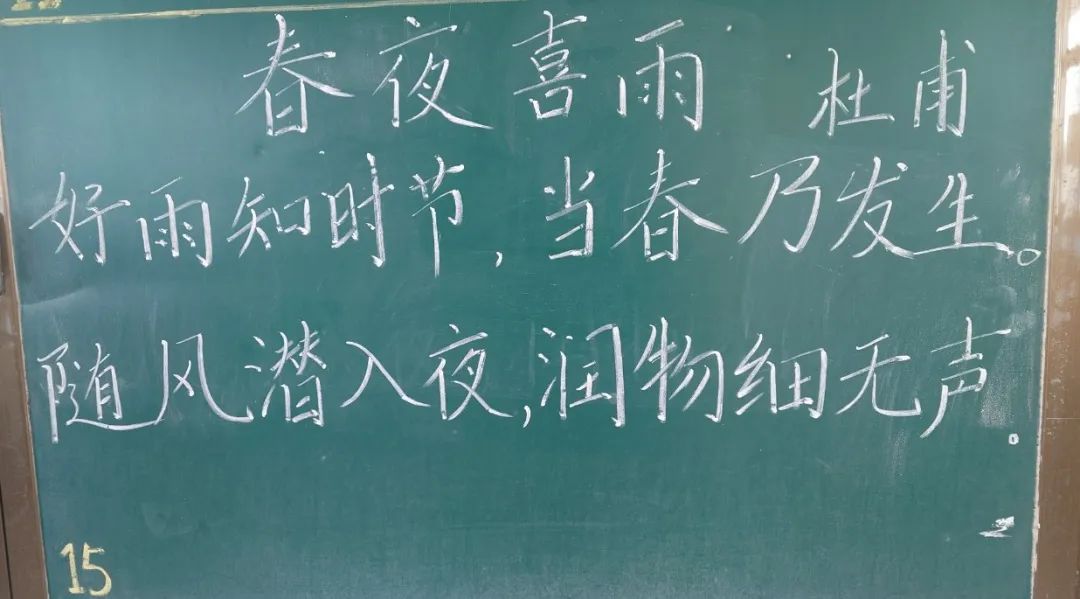 春夜喜雨 杜甫
好雨知时节,当春乃发生。
随风潜入夜,润物细无声。
15